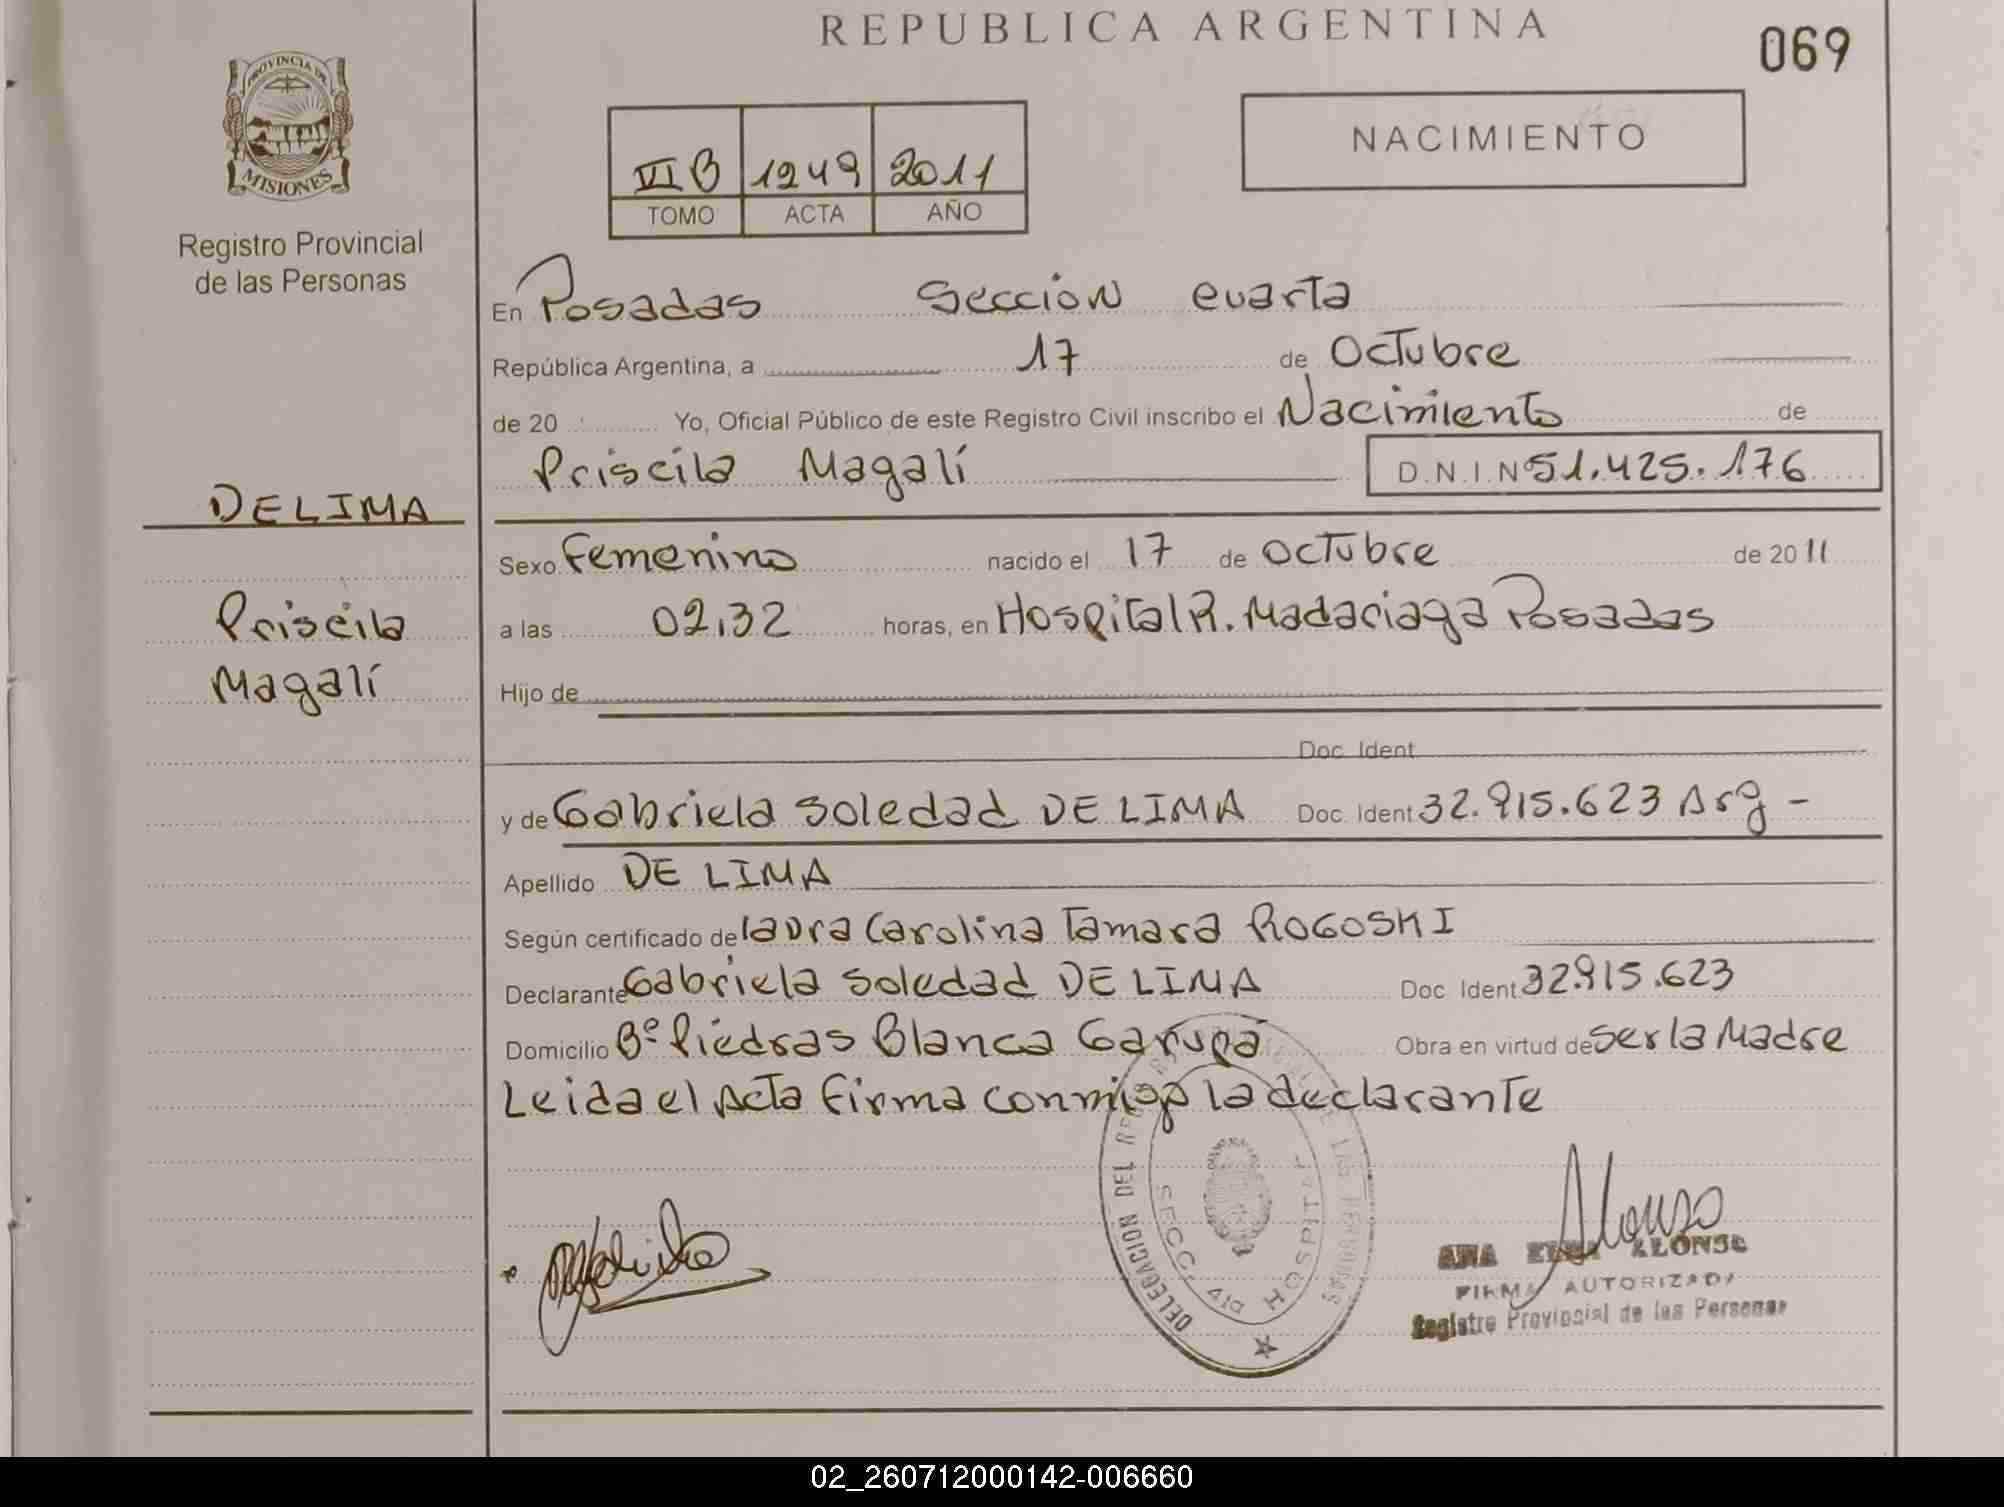 REPUBLICA ARGENTINA
069
PROVINCIA DE
MISIONES
Registro Provincial
de las Personas
VI B 1249 2011
TOMO ACTA AÑO
NACIMIENTO
En Posadas Seccion cuarta
República Argentina, a 17 de Octubre
de 20 Yo, Oficial Público de este Registro Civil inscribo el Nacimiento de
Priscila Magalí D.N.I.Nº 51.425.176
DE LIMA
Priscila
Magalí
Sexo Femenino nacido el 17 de Octubre de 2011
a las 02,32 horas, en Hospital R. Madariaga Posadas
Hijo de
Doc. Ident
y de Gabriela Soledad DE LIMA Doc. Ident 32.915.623 Arg -
Apellido DE LIMA
Según certificado de laura Carolina Tamara ROGOSKI
Declarante Gabriela Soledad DE LIMA Doc. Ident. 32.915.623
Domicilio Bº Piedras Blanca Garupá Obra en virtud de ser la Madre
Leida el Acta firma conmigo la declarante
DELEGACION DEL LAS PERSONAS
SECC. 4ta HOSPITAL
Alonso
ANA ELSA ALONSO
FIRMA AUTORIZADA
Registro Provincial de las Personas
02_260712000142-006660